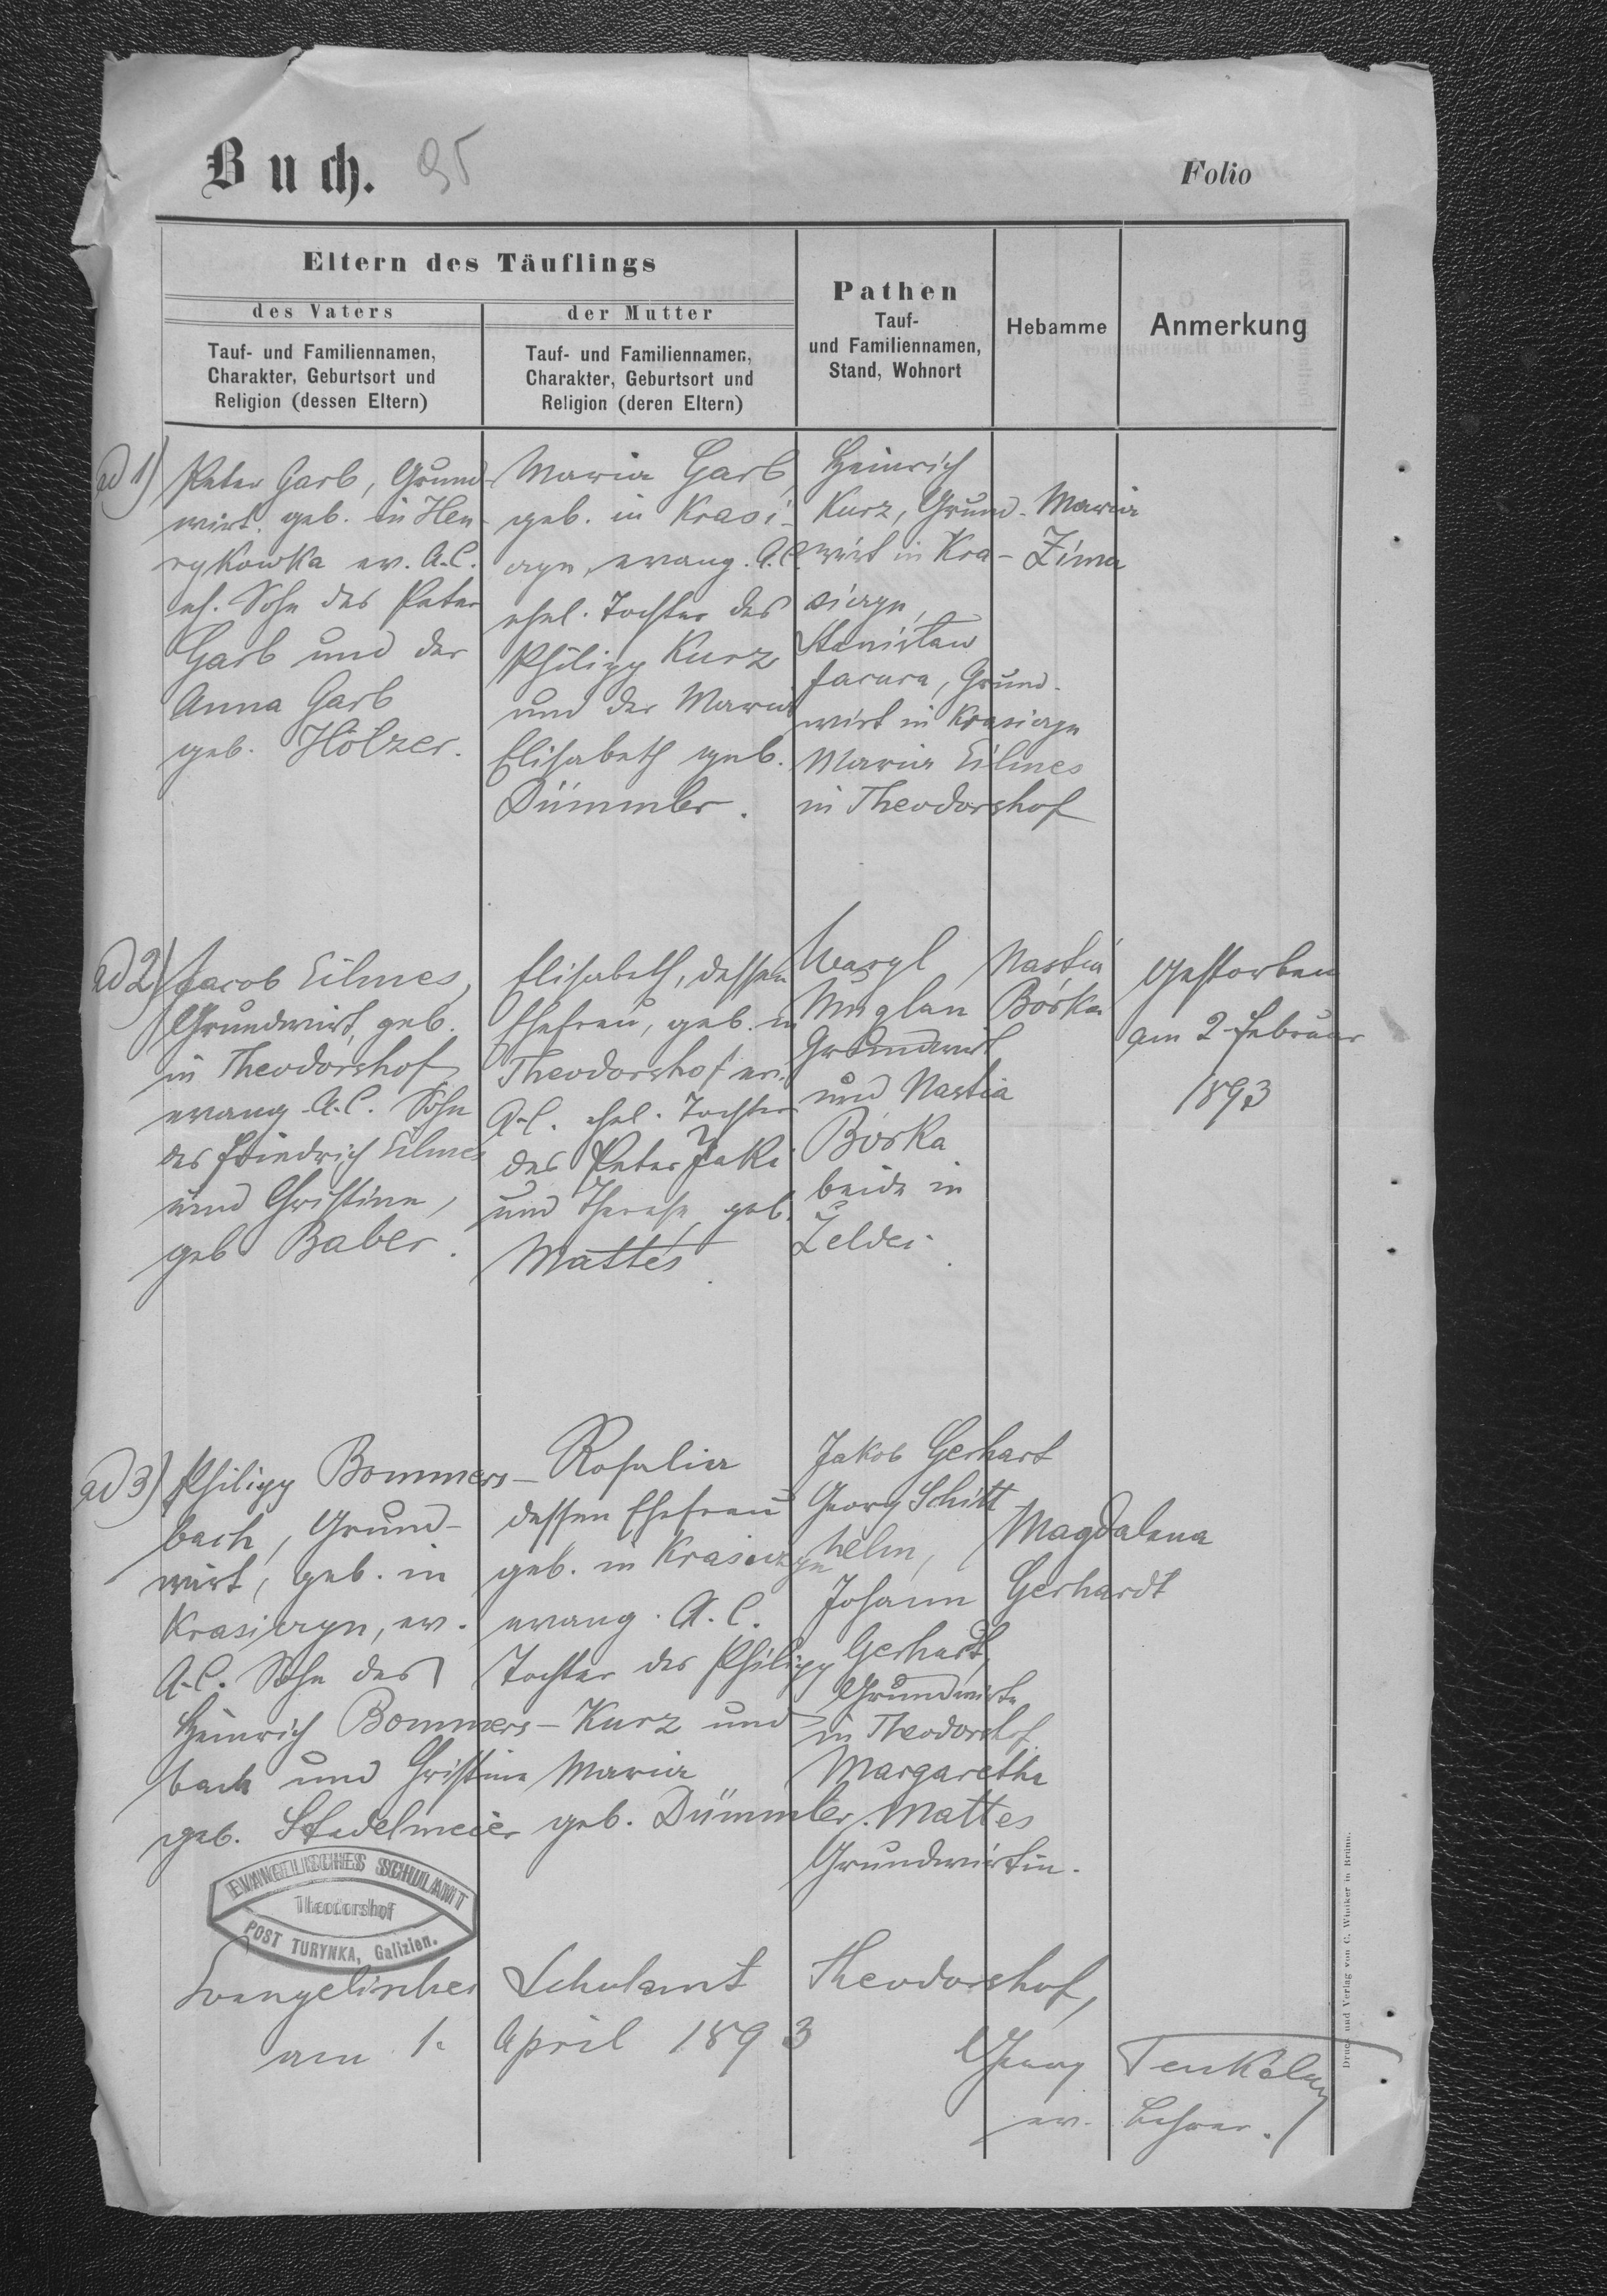 Buch. 95
Folio
Eltern des Täuflings
des Vaters
Tauf- und Familiennamen,
Charakter, Geburtsort und
Religion (dessen Eltern)
der Mutter
Tauf- und Familiennamen,
Charakter, Geburtsort und
Religion (deren Eltern)
Pathen
Tauf-
und Familiennamen,
Stand, Wohnort
Hebamme
Anmerkung
ad 1)
Peter Garb, Grund-
wirt, geb. in Hen-
rykowka ev. A.C.
eh. Sohn des Peter
Garb und der
Anna Garb
geb. Hölzer.
Maria Garb,
geb. in Krasi-
czyn, evang. A.C.
ehel. Tochter des
Philipp Kurz
und der Maria
Elisabeth geb.
Dümmler.
Heinrich
Kurz, Grund-
wirt in Kra-
siczyn,
Stanisław
Grund-
wirt in Krasiczyn
Maria Eilmes
in Theodorshof
Maria
Zima
ad 2)
Jacob Eilmes,
Grundwirt, geb.
in Theodorshof,
evang. A.C. Sohn
des Friedrich Eilmes
und Christine,
geb. Baber.
Elisabeth, dessen
Ehefrau, geb. in
Theodorshof ev.
A.C. ehel. Tochter
des Peter Jaki
und Therese, geb.
Mattes.
Grundwirt
und Nastia
Bórka
beide in
Żeldec.
Nastia
Bórka
Gestorben
am 2. Februar
1893
ad 3)
Philipp Bommers-
bach, Grund-
wirt, geb. in
Krasiczyn, ev.
A.C. Sohn des
Heinrich Bommers-
bach und Christine
geb. Stadelmeier
Rosalia
dessen Ehefrau
geb. in Krasiczyn
evang. A.C.
Tochter des Philipp
Kurz und
Maria
geb. Dümmler.
Jakob Gerhart
Georg Schitt
helm,
Johann
Gerhart,
Grundwirte
in Theodorshof.
Margaretha
Mattes
Grundwirtin.
Magdalena
Gerhardt
EVANGELISCHES SCHULAMT
Theodorshof
POST TURYNKA, Galizien.
Evangelisches Schulamt Theodorshof,
am 1. April 1893
Georg
ev. Lehrer.
Druck und Verlag von C. Winiker in Brünn.